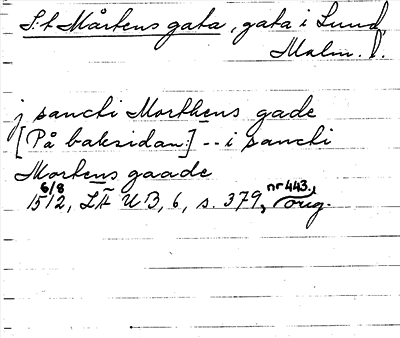 S:t Mårtens gata, gata i Lund
Malm. l.
j sancti Morthens gade
[På baksidan:] -- i sancti
Mortens gaade
6/8 1512, LÄ UB, 6, s. 379, nr 443., orig.